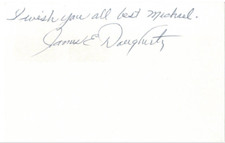 I wish you all best Michael.
James E Dougherty